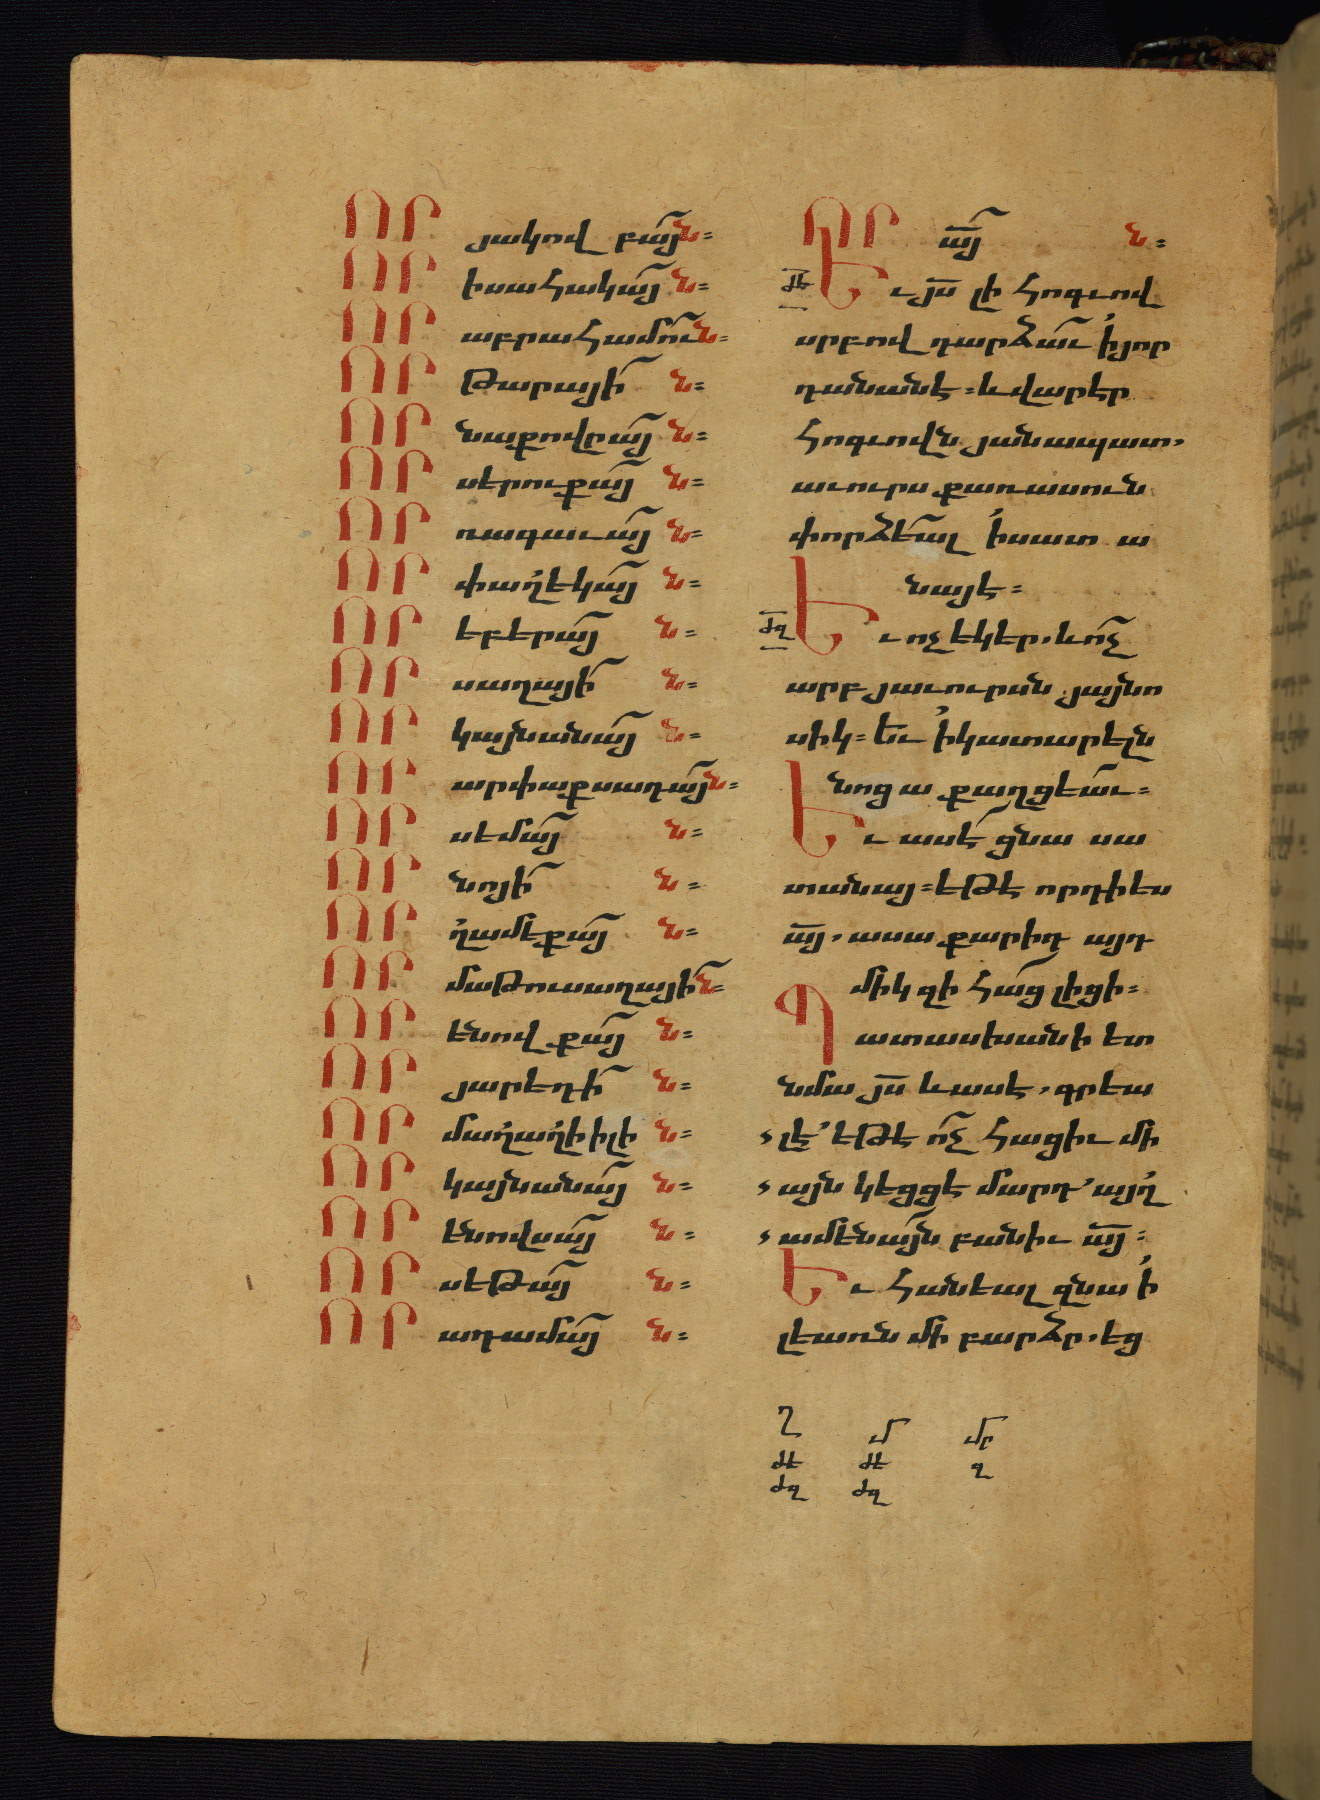 ՈՐ յակովբայ̃ն։
ՈՐ իսահակայ̃ ն։
ՈՐ աբրահամու̃ն։
ՈՐ թարայի̃ ն։
ՈՐ նաքովրայ̃ ն։
ՈՐ սերուքայ̃ ն։
ՈՐ ռագաւայ̃ ն։
ՈՐ փաղ՚եկայ̃ ն։
ՈՐ եբերայ̃ ն։
ՈՐ սաղայի̃ ն։
ՈՐ կայնանայ̃ ն։
ՈՐ արփաքսադայ̃ն։
ՈՐ սեմայ̃ ն։
ՈՐ նոյի̃ ն։
ՈՐ ղ՚ամեքայ̃ ն։
ՈՐ մաթուսաղայի̃ն։
ՈՐ ենովքայ̃ ն։
ՈՐ յարեդի̃ ն։
ՈՐ մաղ՚աղ՚իիլի ն։
ՈՐ կայնանայ̃ ն։
ՈՐ ենովսայ̃ ն։
ՈՐ սեթայ̃ ն։
ՈՐ ադամայ̃ ն։
ՈՐ ա̅յ ն։
ժե Եւ յ̅ս լի հոգւով
սրբով դարձաւ̃ ի՛յոր
դանանէ։ և վարէր
հոգւովն յանապատ,
աւուրս քառասուն
փորձեալ̃ ի՛սատա
նայէ։
ժզ Եւ ոչ եկեր. և ոչ̃
արբ յաւուրսն յայնո
սիկ։ Եւ ի՛կատարելն
նոցա քաղցեաւ̃։
Եւ ասէ̃ ցնա սա
տանայ։ եթէ որդի ես
ա̅յ, ասա քարիդ այդ
միկ զի հաց̃ լիցի։
Պատասխանի ետ
նմա յ̅ս և ասէ, գրեա
լ է՛ եթէ ոչ̃ հացիւ մի
այն կեցցէ մարդ՛ այղ՚
ամենայ̃ն բանիւ ա̅յ։
Եւ հանեալ զնա ի՛
լեառն մի բարձր. եց
Ղ Մ Մր
ժե ժե զ
ժզ ժզ